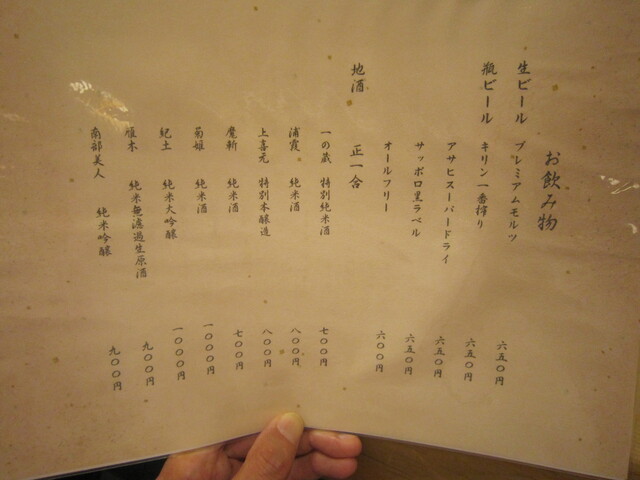 お飲み物
生ビール プレミアムモルツ 六五〇円
瓶ビール キリン一番搾り 六五〇円
アサヒスーパードライ 六五〇円
サッポロ黒ラベル 六五〇円
オールフリー 六〇〇円
地酒 正一合
一の蔵 特別純米酒 七〇〇円
浦霞 純米酒 八〇〇円
上喜元 特別本醸造 八〇〇円
魔斬 純米酒 七〇〇円
菊姫 純米酒 一〇〇〇円
紀土 純米大吟醸 一〇〇〇円
雁木 純米無濾過生原酒 九〇〇円
南部美人 純米吟醸 九〇〇円